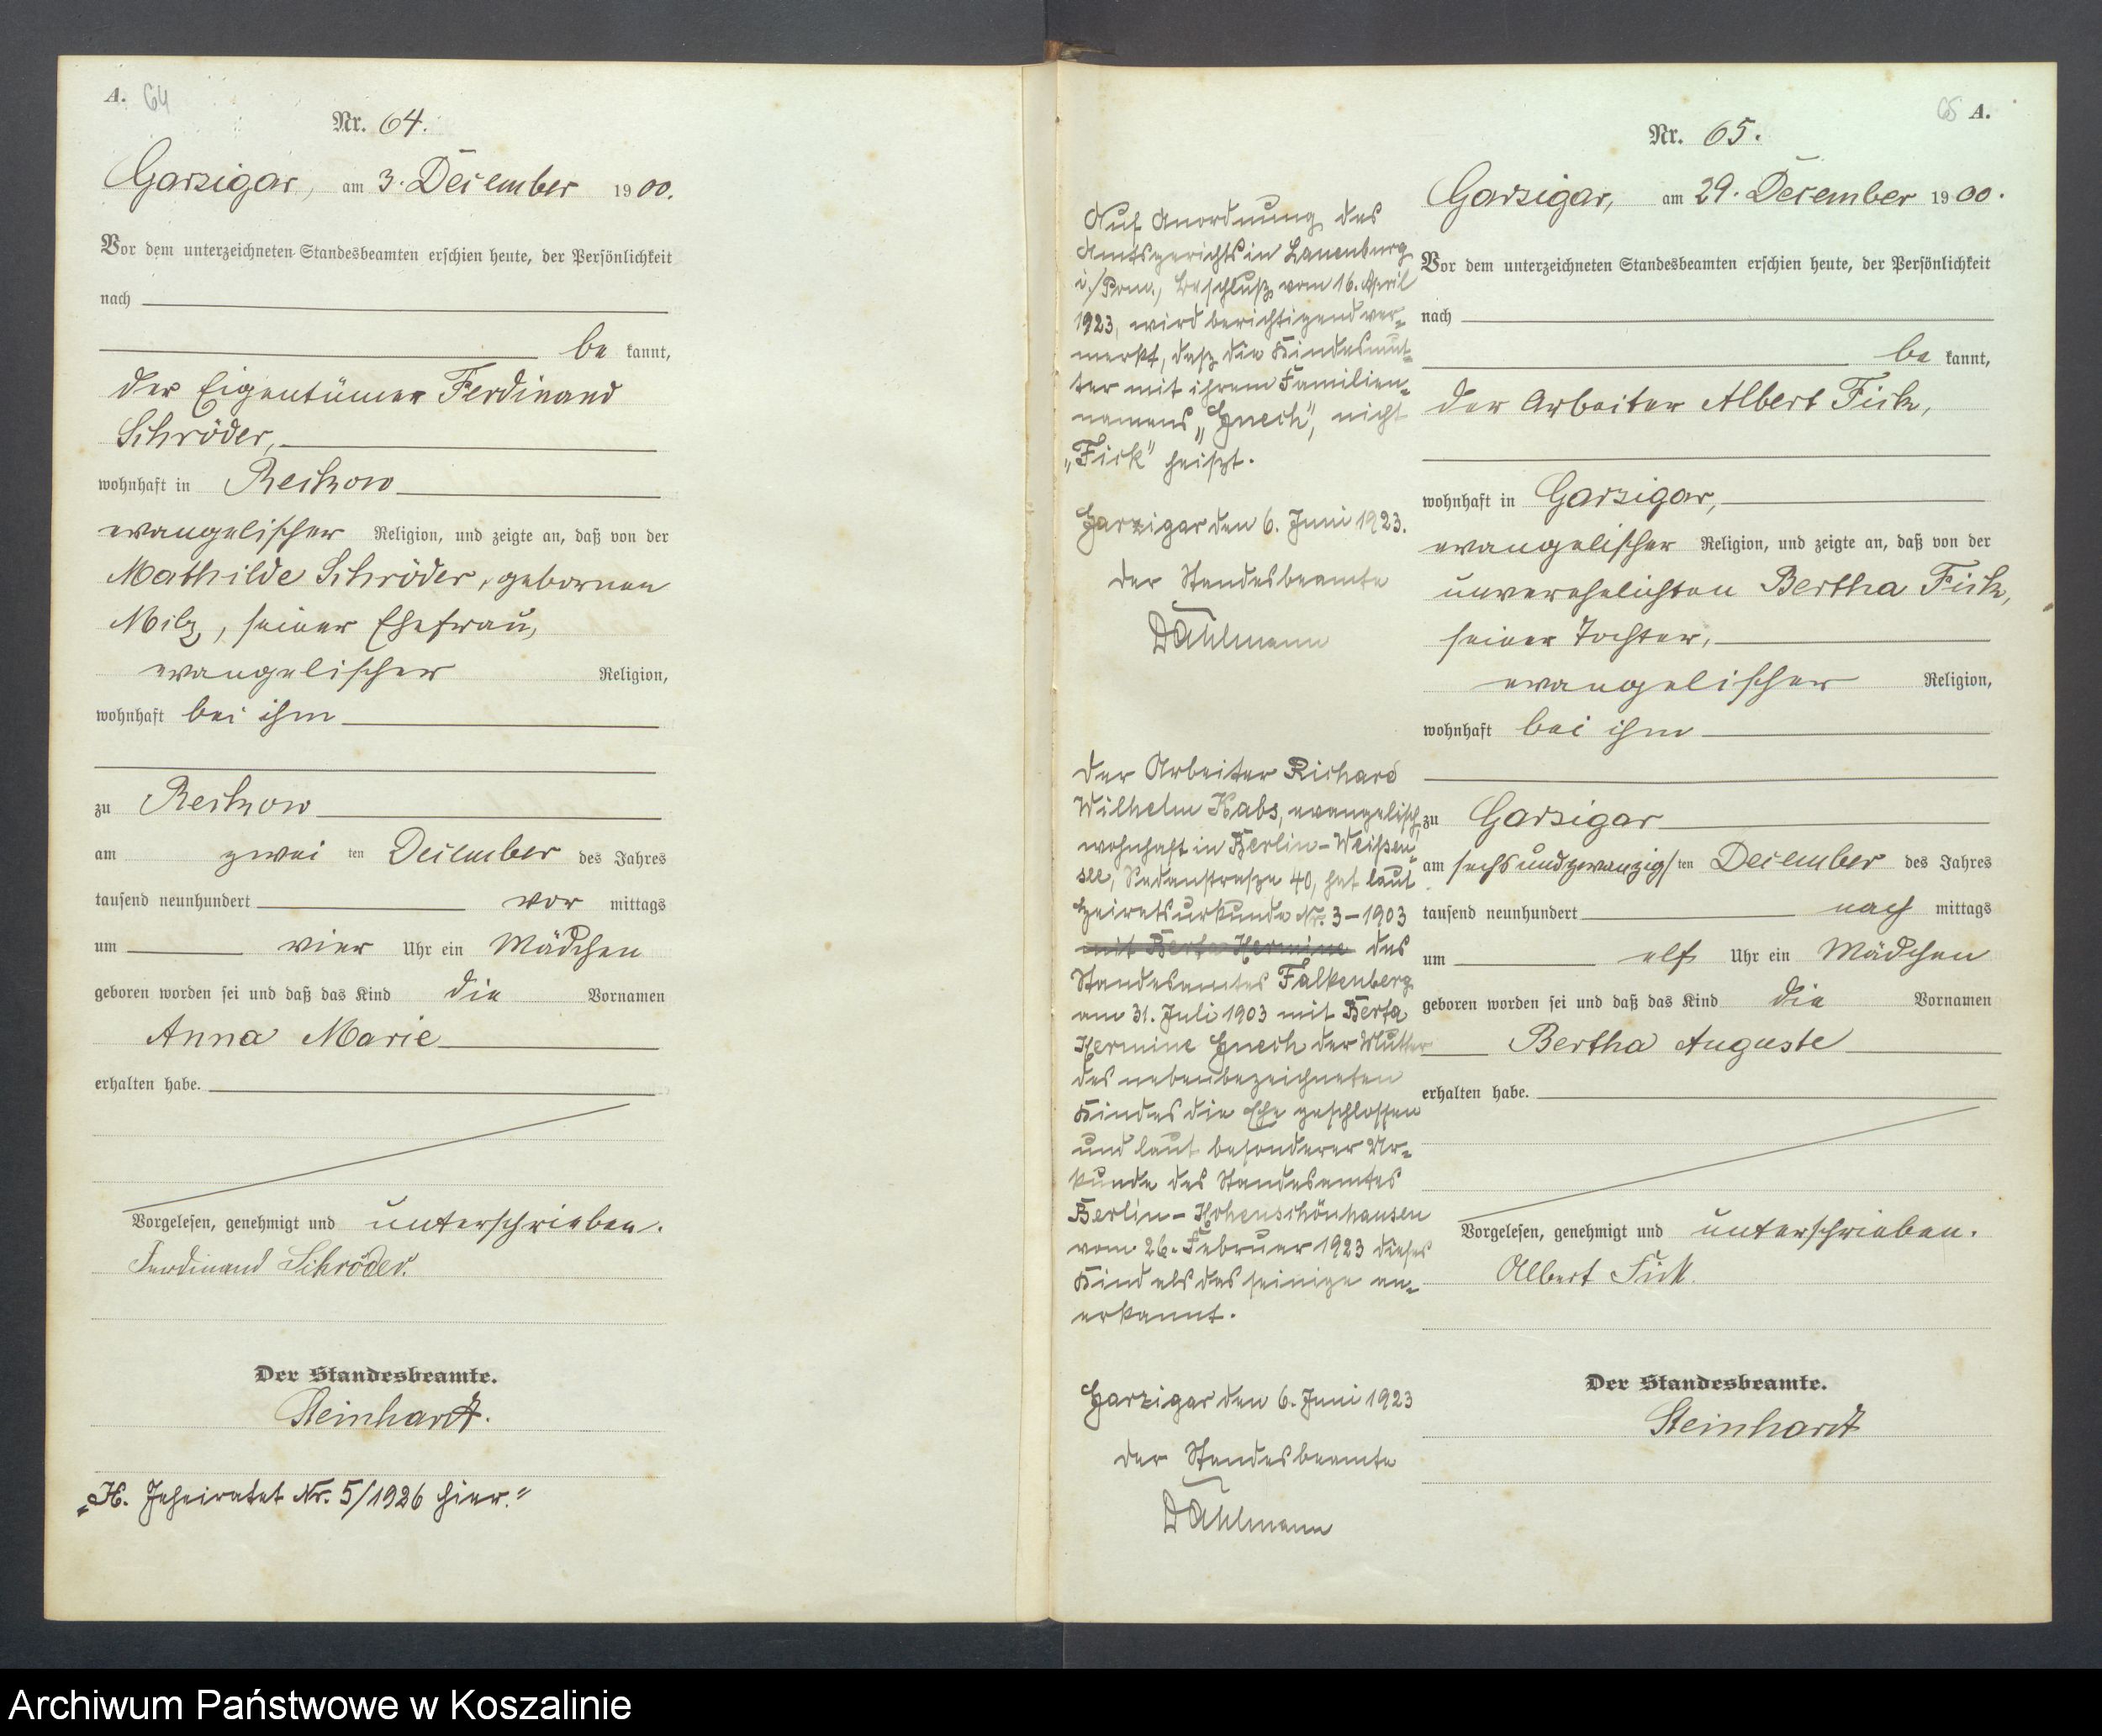 A. 64
Nr. 64.
Garzigar, am 3. December 1900.
Vor dem unterzeichneten Standesbeamten erschien heute, der Persönlichkeit
nach
be kannt,
der Eigentümer Ferdinand
Schröder,
wohnhaft in Reckow
evangelischer Religion, und zeigte an, daß von der
Mathilde Schröder, gebornen
Milz, seiner Ehefrau,
evangelischer Religion,
wohnhaft bei ihm
zu Reckow
am zwei ten December des Jahres
tausend neunhundert vor mittags
um vier Uhr ein Mädchen
geboren worden sei und daß das Kind die Vornamen
Anna Marie
erhalten habe.
Vorgelesen, genehmigt und unterschrieben.
Ferdinand Schröder.
Der Standesbeamte.
Steinhardt.
„H. Geheiratet Nr. 5/1926 hier."
Auf Anordnung des
Amtsgerichts in Lauenburg
i./Pom., Beschluß vom 16. April
1923, wird berichtigend ver-
merkt, daß die Kindesmut-
ter mit ihrem Familien-
namens „Gnech", nicht
„Fick" heißt.
Garzigar den 6. Juni 1923.
Der Standesbeamte
Dahlmann
Der Arbeiter Richard
Wilhelm Kabs, evangelisch,
wohnhaft in Berlin-Weißen-
see, Sedanstraße 40, hat laut
Heiratsurkunde Nr. 3-1903
mit Berta Hermine des
Standesamtes Falkenberg
am 31. Juli 1903 mit Berta
Hermine Gnech der Mutter
des nebenbezeichneten
Kindes die Ehe geschlossen
und laut besonderer Ur-
kunde des Standesamtes
Berlin-Hohenschönhausen
vom 26. Februar 1923 dieses
Kind als das seinige an-
erkannt.
Garzigar den 6. Juni 1923
Der Standesbeamte
Dahlmann
65 A.
Nr. 65.
Garzigar, am 29. December 1900.
Vor dem unterzeichneten Standesbeamten erschien heute, der Persönlichkeit
nach
be kannt,
der Arbeiter Albert Fick,
wohnhaft in Garzigar,
evangelischer Religion, und zeigte an, daß von der
unverehelichten Bertha Fick,
seiner Tochter,
evangelischer Religion,
wohnhaft bei ihm
zu Garzigar
am sechsundzwanzig/ten December des Jahres
tausend neunhundert nach mittags
um elf Uhr ein Mädchen
geboren worden sei und daß das Kind die Vornamen
Bertha Auguste
erhalten habe.
Vorgelesen, genehmigt und unterschrieben.
Albert Fick.
Der Standesbeamte.
Steinhardt
Archiwum Państwowe w Koszalinie